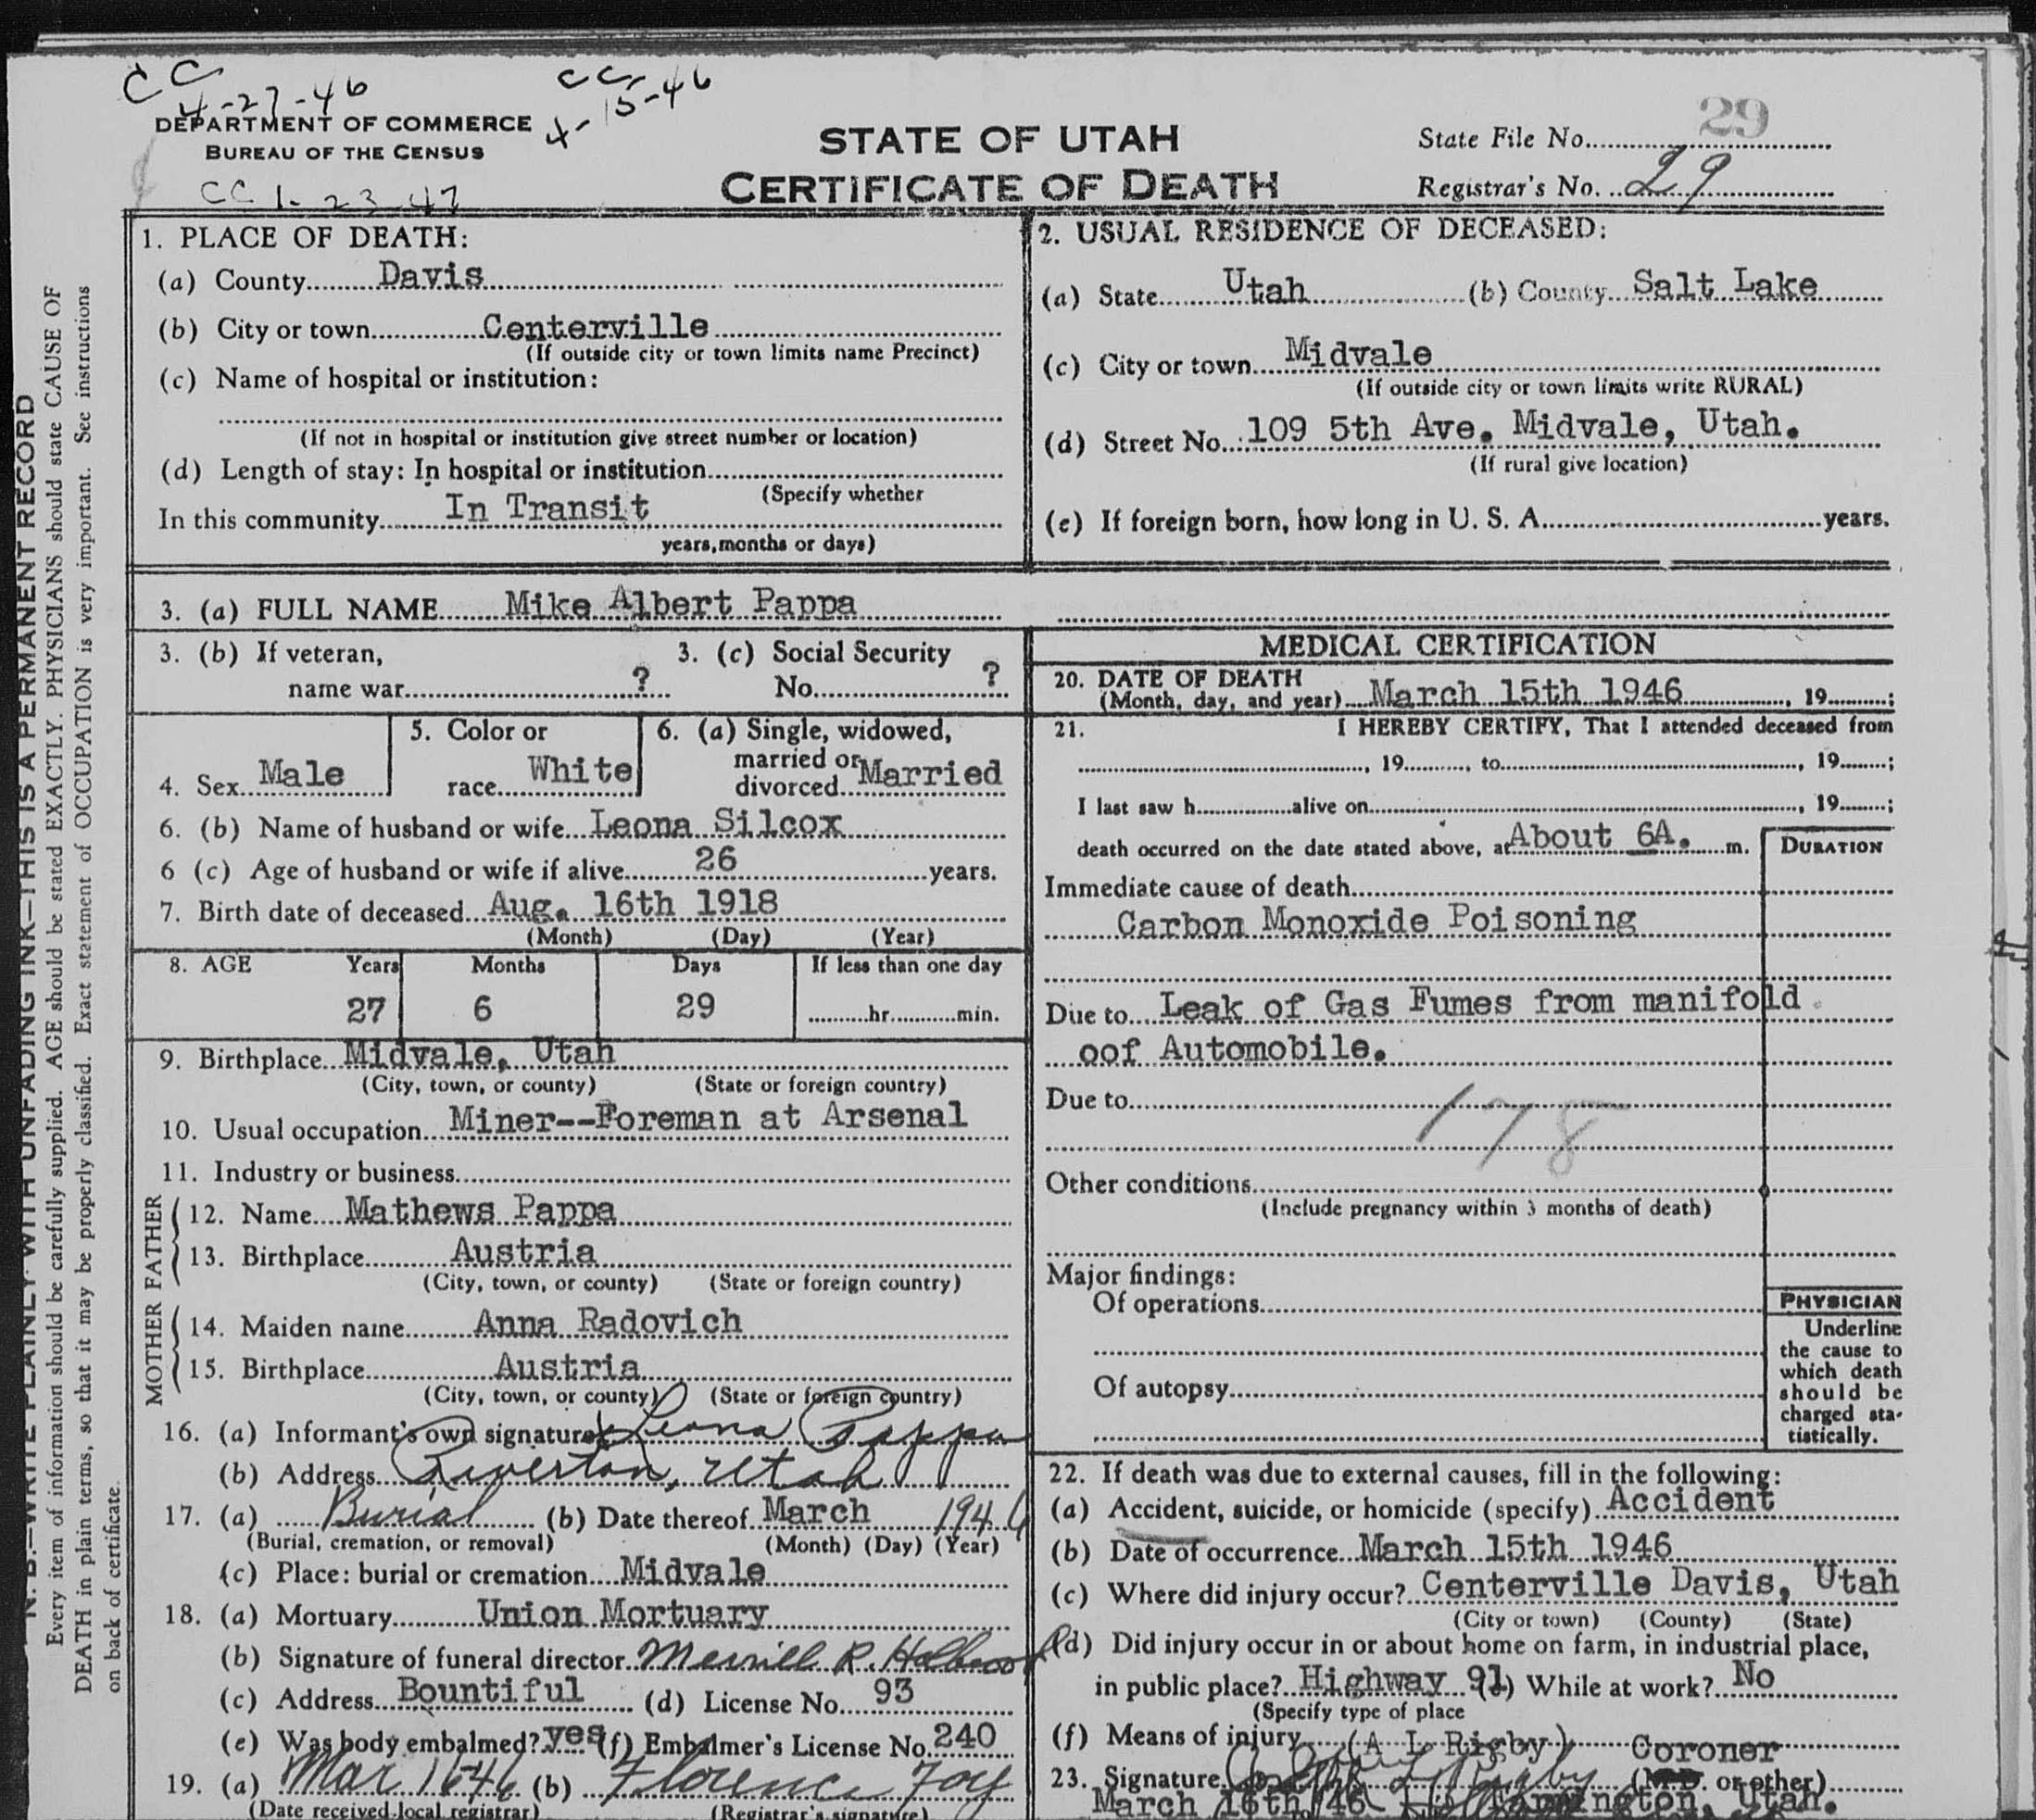 CC
4-27-46
CC
4-15-46
DEPARTMENT OF COMMERCE
BUREAU OF THE CENSUS
CC 1-23-47
STATE OF UTAH
CERTIFICATE OF DEATH
State File No. 29
Registrar's No. 29
N. B.—WRITE PLAINLY WITH UNFADING INK—THIS IS A PERMANENT RECORD
Every item of information should be carefully supplied. AGE should be stated EXACTLY. PHYSICIANS should state CAUSE OF
DEATH in plain terms, so that it may be properly classified. Exact statement of OCCUPATION is very important. See instructions
on back of certificate.
1. PLACE OF DEATH:
(a) County Davis
(b) City or town Centerville
(If outside city or town limits name Precinct)
(c) Name of hospital or institution:
(If not in hospital or institution give street number or location)
(d) Length of stay: In hospital or institution
(Specify whether
In this community In Transit
years, months or days)
2. USUAL RESIDENCE OF DECEASED:
(a) State Utah (b) County Salt Lake
(c) City or town Midvale
(If outside city or town limits write RURAL)
(d) Street No. 109 5th Ave. Midvale, Utah.
(If rural give location)
(e) If foreign born, how long in U. S. A. years.
3. (a) FULL NAME Mike Albert Pappa
3. (b) If veteran,
name war ?
3. (c) Social Security
No. ?
4. Sex Male
5. Color or
race White
6. (a) Single, widowed,
married or
divorced Married
6. (b) Name of husband or wife Leona Silcox
6 (c) Age of husband or wife if alive 26 years.
7. Birth date of deceased Aug. 16th 1918
(Month) (Day) (Year)
8. AGE Years Months Days If less than one day
27 6 29 hr. min.
9. Birthplace Midvale, Utah
(City, town, or county) (State or foreign country)
10. Usual occupation Miner--Foreman at Arsenal
11. Industry or business
FATHER
12. Name Mathews Pappa
13. Birthplace Austria
(City, town, or county) (State or foreign country)
MOTHER
14. Maiden name Anna Radovich
15. Birthplace Austria
(City, town, or county) (State or foreign country)
16. (a) Informant's own signature Leona Pappa
(b) Address Riverton, Utah
17. (a) Burial (b) Date thereof March 1946
(Burial, cremation, or removal) (Month) (Day) (Year)
(c) Place: burial or cremation Midvale
18. (a) Mortuary Union Mortuary
(b) Signature of funeral director Merrill R. Holbrook
(c) Address Bountiful (d) License No. 93
(e) Was body embalmed? yes (f) Embalmer's License No. 240
19. (a) Mar 16 46 (b) Florence Foy
(Date received local registrar) (Registrar's signature)
MEDICAL CERTIFICATION
20. DATE OF DEATH
(Month, day, and year) March 15th 1946, 19 ;
21. I HEREBY CERTIFY, That I attended deceased from
, 19 , to , 19 ;
I last saw h alive on , 19 ;
death occurred on the date stated above, at About 6A. m.
DURATION
Immediate cause of death
Carbon Monoxide Poisoning
Due to Leak of Gas Fumes from manifold
oof Automobile.
Due to
178
Other conditions
(Include pregnancy within 3 months of death)
Major findings:
Of operations
Of autopsy
PHYSICIAN
Underline
the cause to
which death
should be
charged sta-
tistically.
22. If death was due to external causes, fill in the following:
(a) Accident, suicide, or homicide (specify) Accident
(b) Date of occurrence March 15th 1946
(c) Where did injury occur? Centerville Davis, Utah
(City or town) (County) (State)
(d) Did injury occur in or about home on farm, in industrial place,
in public place? Highway 91 (e) While at work? No
(Specify type of place
(f) Means of injury (A L Rigby) Coroner
23. Signature Rigby (M.D. or other)
March 16th '46 Farmington, Utah.